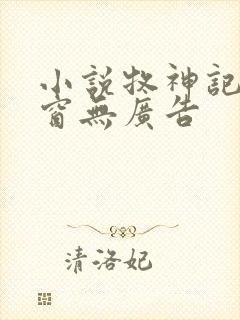 小説牧神記
窗無廣告
清洛妃